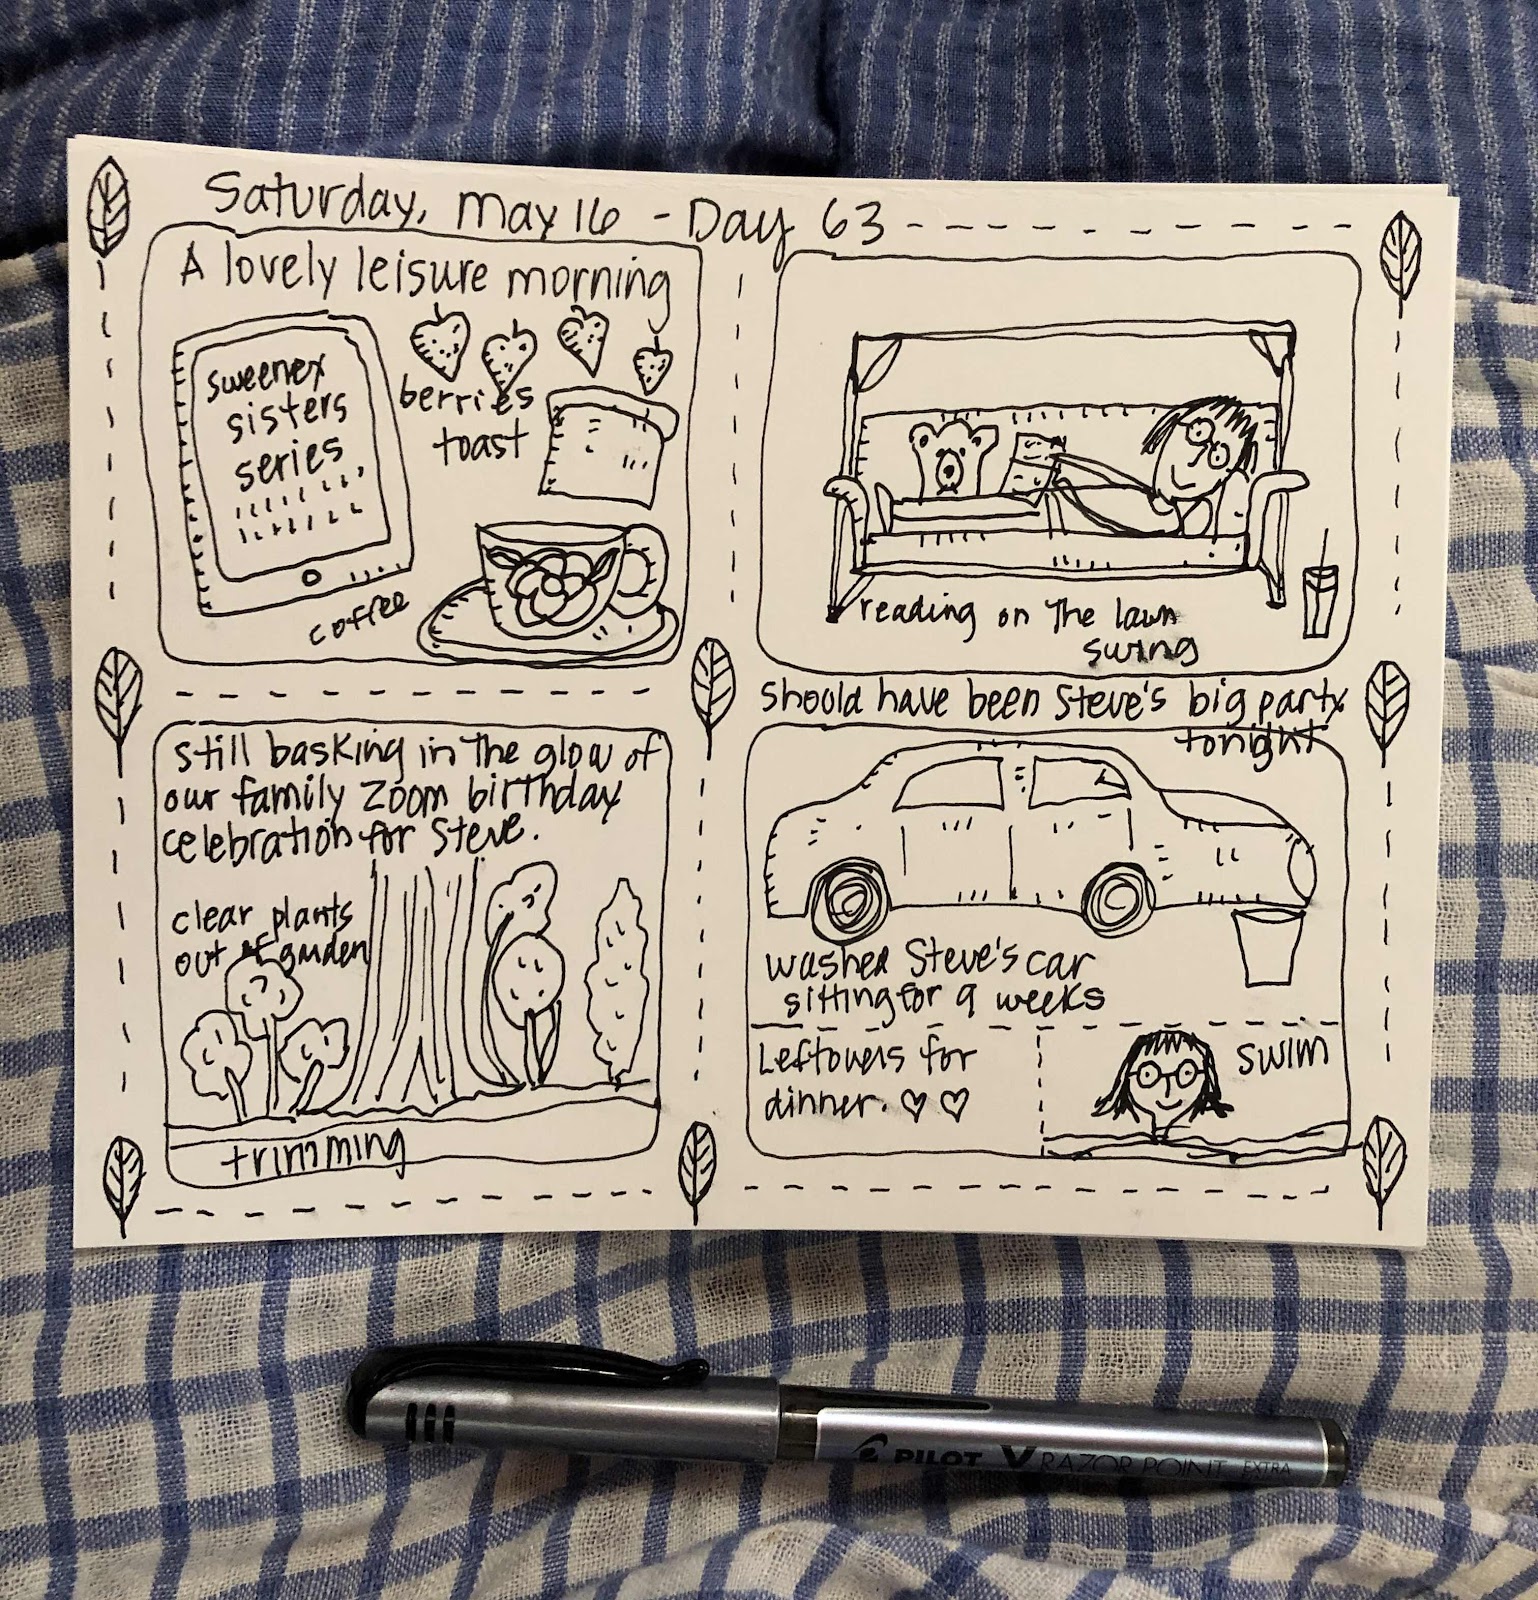 Saturday, May 16 - Day 63
A lovely leisure morning
sweeney
sisters
series
berries
toast
coffee
reading on the lawn
swing
still basking in the glow of
our family zoom birthday
celebration for Steve.
clear plants
out of garden
trimming
should have been Steve's big party
tonight
washed Steve's car
sitting for 9 weeks
Leftovers for
dinner. ♡ ♡
swim
PILOT V RAZOR POINT EXTRA